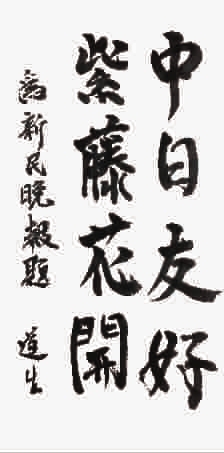 中日友好
紫藤花開
為新民晚報題 蓮生